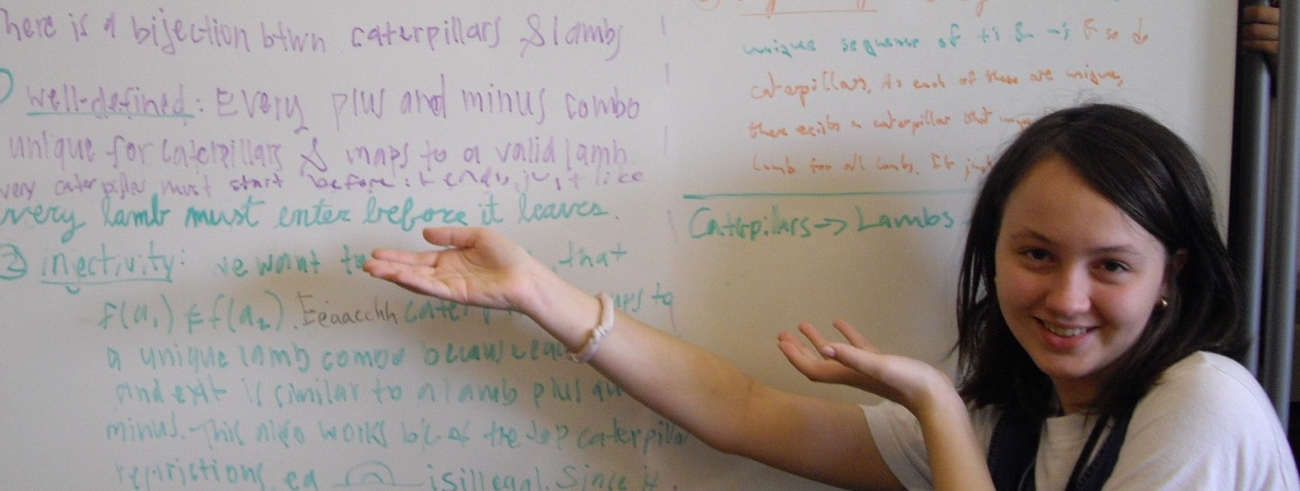 here is a bijection btwn caterpillars & lambs
well-defined: Every plus and minus combo
unique for caterpillars & maps to a valid lamb.
very caterpillar must start before it ends, just like
very lamb must enter before it leaves.
② injectivity: we want that
f(a₁) ≠ f(a₂). Eeaacchh
a unique lamb combo
and exit is similar to a lamb plus
minus. This also works b/c of the top caterpillar
restrictions, eg is illegal. Since
unique sequence of +'s & -'s so do
caterpillars. As each of these are unique,
there exists a caterpillar that
lamb for all lambs. It
Caterpillars -> Lambs